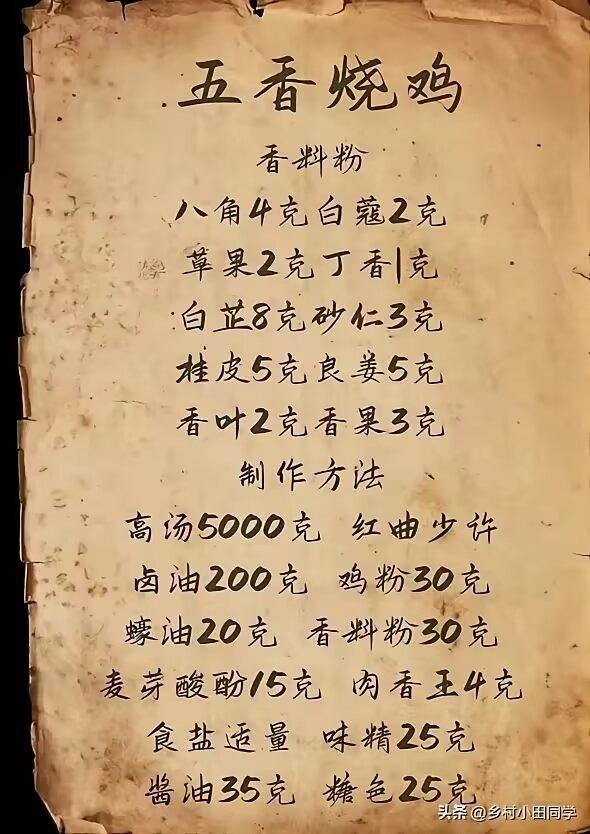 五香烧鸡
香料粉
八角4克白蔻2克
草果2克丁香1克
白芷8克砂仁3克
桂皮5克良姜5克
香叶2克香果3克
制作方法
高汤5000克 红曲少许
卤油200克 鸡粉30克
蠔油20克 香料粉30克
麦芽酸酚15克 肉香王4克
食盐适量 味精25克
酱油35克 糖色25克
头条 @乡村小田同学